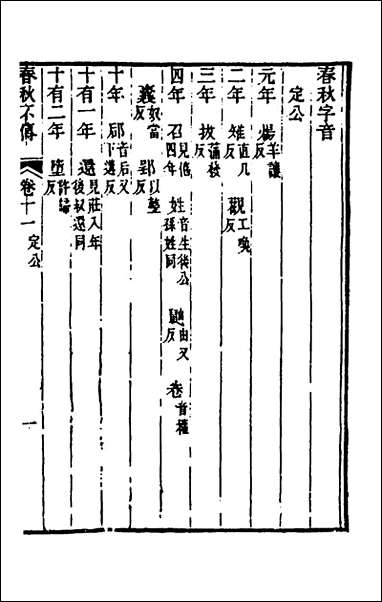 春秋字音
定公
元年 煬羊讓反
二年 雉直几反 觀工喚反
三年 拔蒲枝
四年 召見僖四年 姓音生後公孫姓同 鼬由又反 卷音權
囊奴當反 郢以整反
十年 郈音后又下遘反
十有一年 還見莊八年後叔還同
十有二年 墮許歸反
春秋不傳 卷十一 定公 一